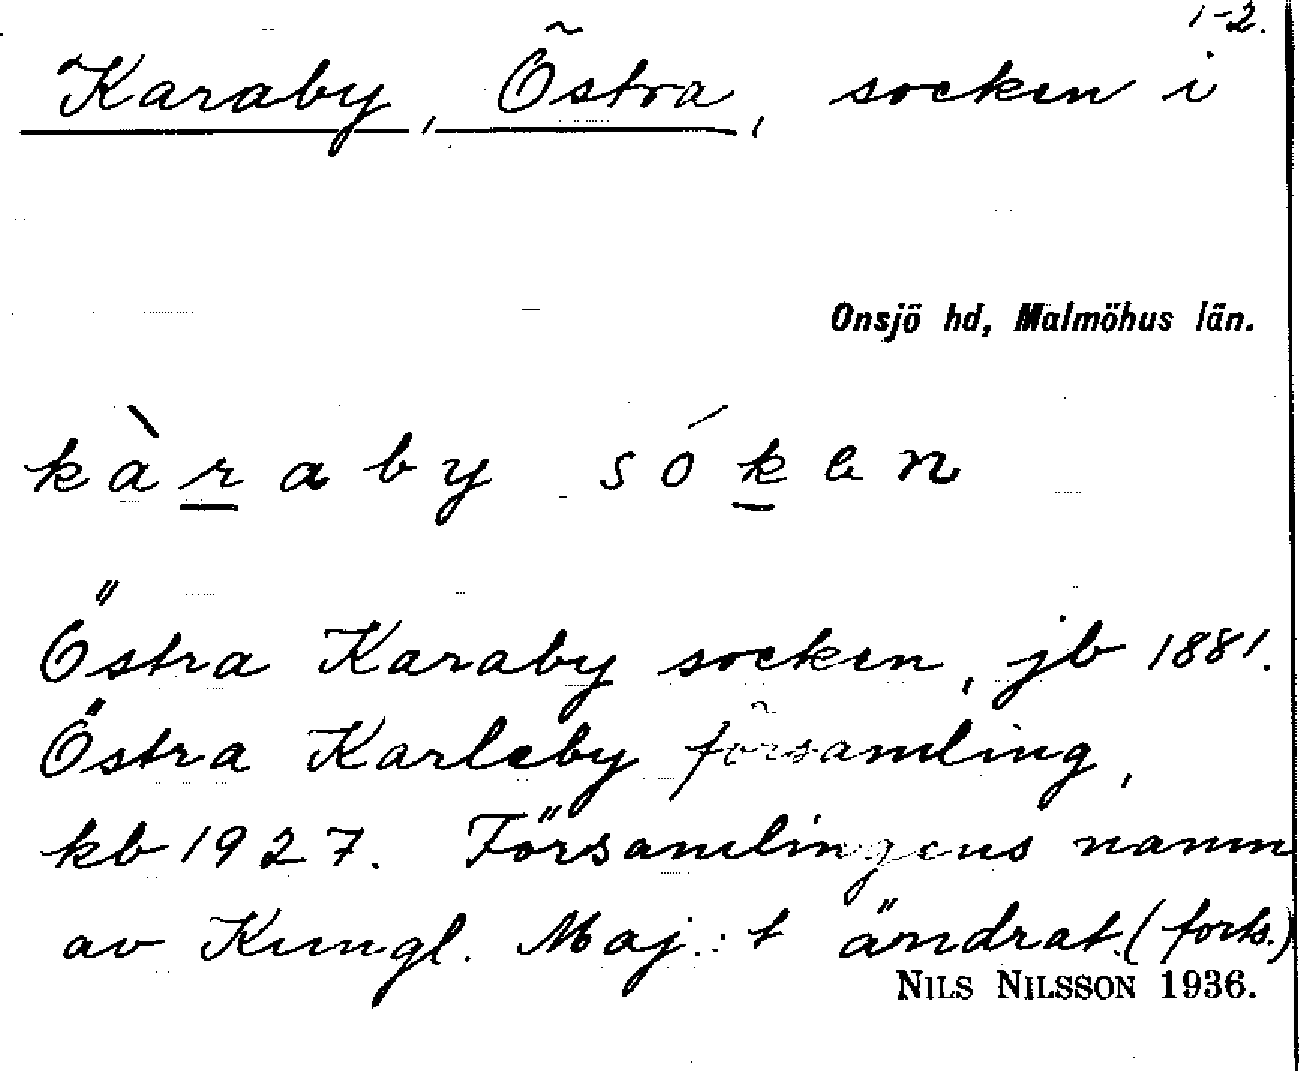 1-2.
Karaby, Östra, socken i
Onsjö hd, Malmöhus län.
kàraby sóken
Östra Karaby socken, jb 1881.
Östra Karleby församling,
kb 1927. Församlingens namn
av Kungl. Maj:t ändrat. (forts.)
NILS NILSSON 1936.